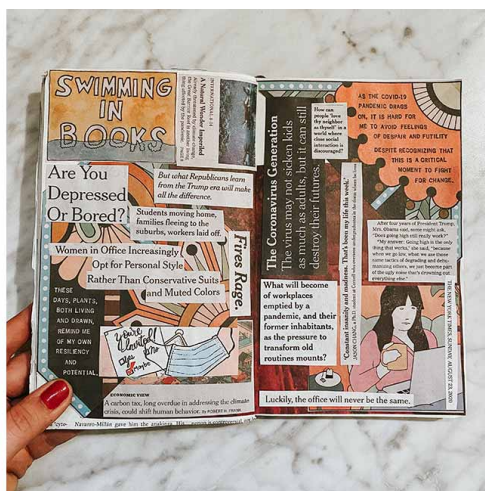 SWIMMING
IN
BOOKS
INTERNATIONAL
A Natural Wonder Imperiled
Are You
Depressed
Or Bored?
But what Republicans learn
from the Trump era will make
all the difference.
Students moving home,
families fleeing to the
suburbs, workers laid off.
Women in Office Increasingly
Opt for Personal Style
Rather Than Conservative Suits
and Muted Colors
Fires Rage.
THESE
DAYS, PLANTS,
BOTH LIVING
AND DRAWN,
REMIND ME
OF MY OWN
RESILIENCY
AND
POTENTIAL.
ECONOMIC VIEW
A carbon tax, long overdue in addressing the climate
crisis, could shift human behavior.
Navarro-Millán gave him the
The Coronavirus Generation
The virus may not sicken kids
as much as adults, but it can still
destroy their futures.
How can
people 'love
thy neighbor
as thyself' in a
world where
close social
interaction is
discouraged?
AS THE COVID-19
PANDEMIC DRAGS
ON, IT IS HARD FOR
ME TO AVOID FEELINGS
OF DESPAIR AND FUTILITY
DESPITE RECOGNIZING THAT
THIS IS A CRITICAL
MOMENT TO FIGHT
FOR CHANGE.
'Constant insanity and madness. That's been my life this week.'
After four years of President Trump,
Mrs. Obama said, some might ask,
"Does going high still really work?"
"My answer: Going high is the only
thing that works," she said, "because
when we go low, when we use those
same tactics of degrading and dehu-
manizing others, we just become part
of the ugly noise that's drowning out
everything else."
What will become
of workplaces
emptied by a
pandemic, and their
former inhabitants,
as the pressure to
transform old
routines mounts?
THE NEW YORK TIMES, SUNDAY, AUGUST 23, 2020
Luckily, the office will never be the same.